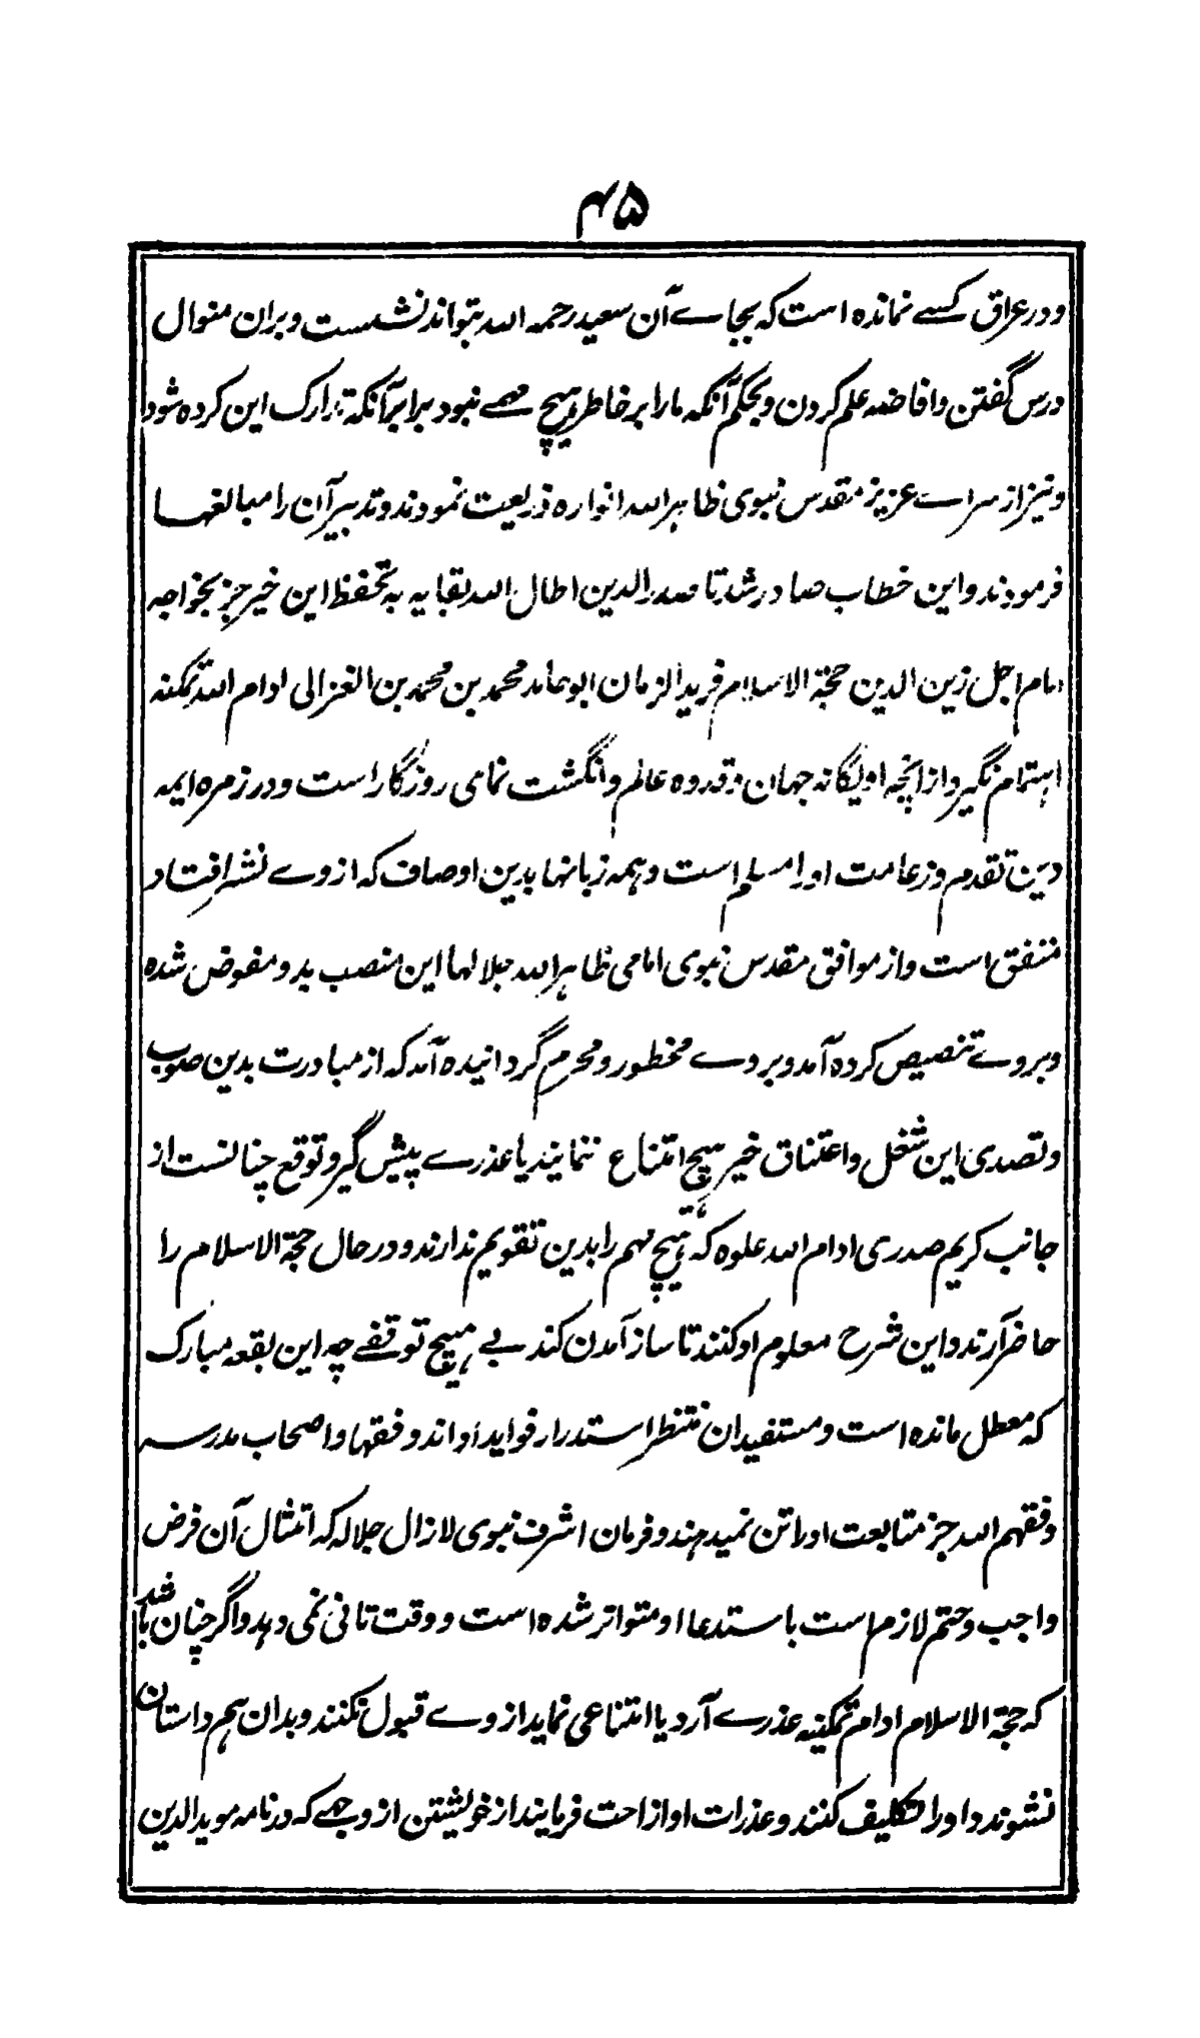 ۴۵
و در عراق کسے نمانده است که بجاے آن سعید رحمه الله بتواند نشست و بران منوال
درس گفتن و افاضه علم کردن و بحکم آنکه ما را بر خاطر هیچ مهمے نبود برابر آنکه تدارک این کرده شود
و نیز از سراے عزیز مقدس نبوی ظاهر الله انواره ذریعت نمودند و تدبیر آن را مبالغها
فرمودند و این خطاب صادر شد تا صدر الدین اطال الله بقایه به تحفظ این خیر جز بخواجه
امام اجل زین الدین حجة الاسلام فرید الزمان ابو حامد محمد بن محمد بن الغزالی ادام الله تمکنه
اهتمام نگیرد از انچه او یگانه جهان و قدوه عالم و انگشت نمای روزگار است و در زمره ایمه
دین تقدم و زعامت او را مسلم است و همه زبانها بدین اوصاف که از وے نشر افتاد
متفق است و از موافق مقدس نبوی امامی ظاهر الله جلالها این منصب بدو مفوض شده
و بروے تنصیص کرده آمد و بروے محظور و محرم گردانیده آمد که از مبادرت بدین صوب
و تصدی این شغل و اعتناق خیر هیچ امتناع ننمایند یا عذرے پیش گیرد و توقع چنانست از
جانب کریم صدری ادام الله علوه که هیچ مهم را بدین تقویم ندارند و در حال حجة الاسلام را
حاضر آرند و این شرح معلوم او کنند تا ساز آمدن کند بے هیچ توقفے چه این بقعه مبارک
که معطل مانده است و مستفیدان منتظر استدرار فواید او اند و فقها و اصحاب مدرسه
وفقهم الله جز متابعت او را تن نمیدهند و فرمان اشرف نبوی لازال جلاله که امتثال آن فرض
واجب و حتم لازم است باستدعا او متواتر شده است و وقت تانی نمی دهد و اگر چنان باشد
که حجة الاسلام ادام تمکینه عذرے آرد یا امتناعی نماید از وے قبول نکنند و بدان هم داستان
نشوند و او را تکلیف کنند و عذرات او ازاحت فرمایند از خویشتن از وجهے که در نامه موید الدین